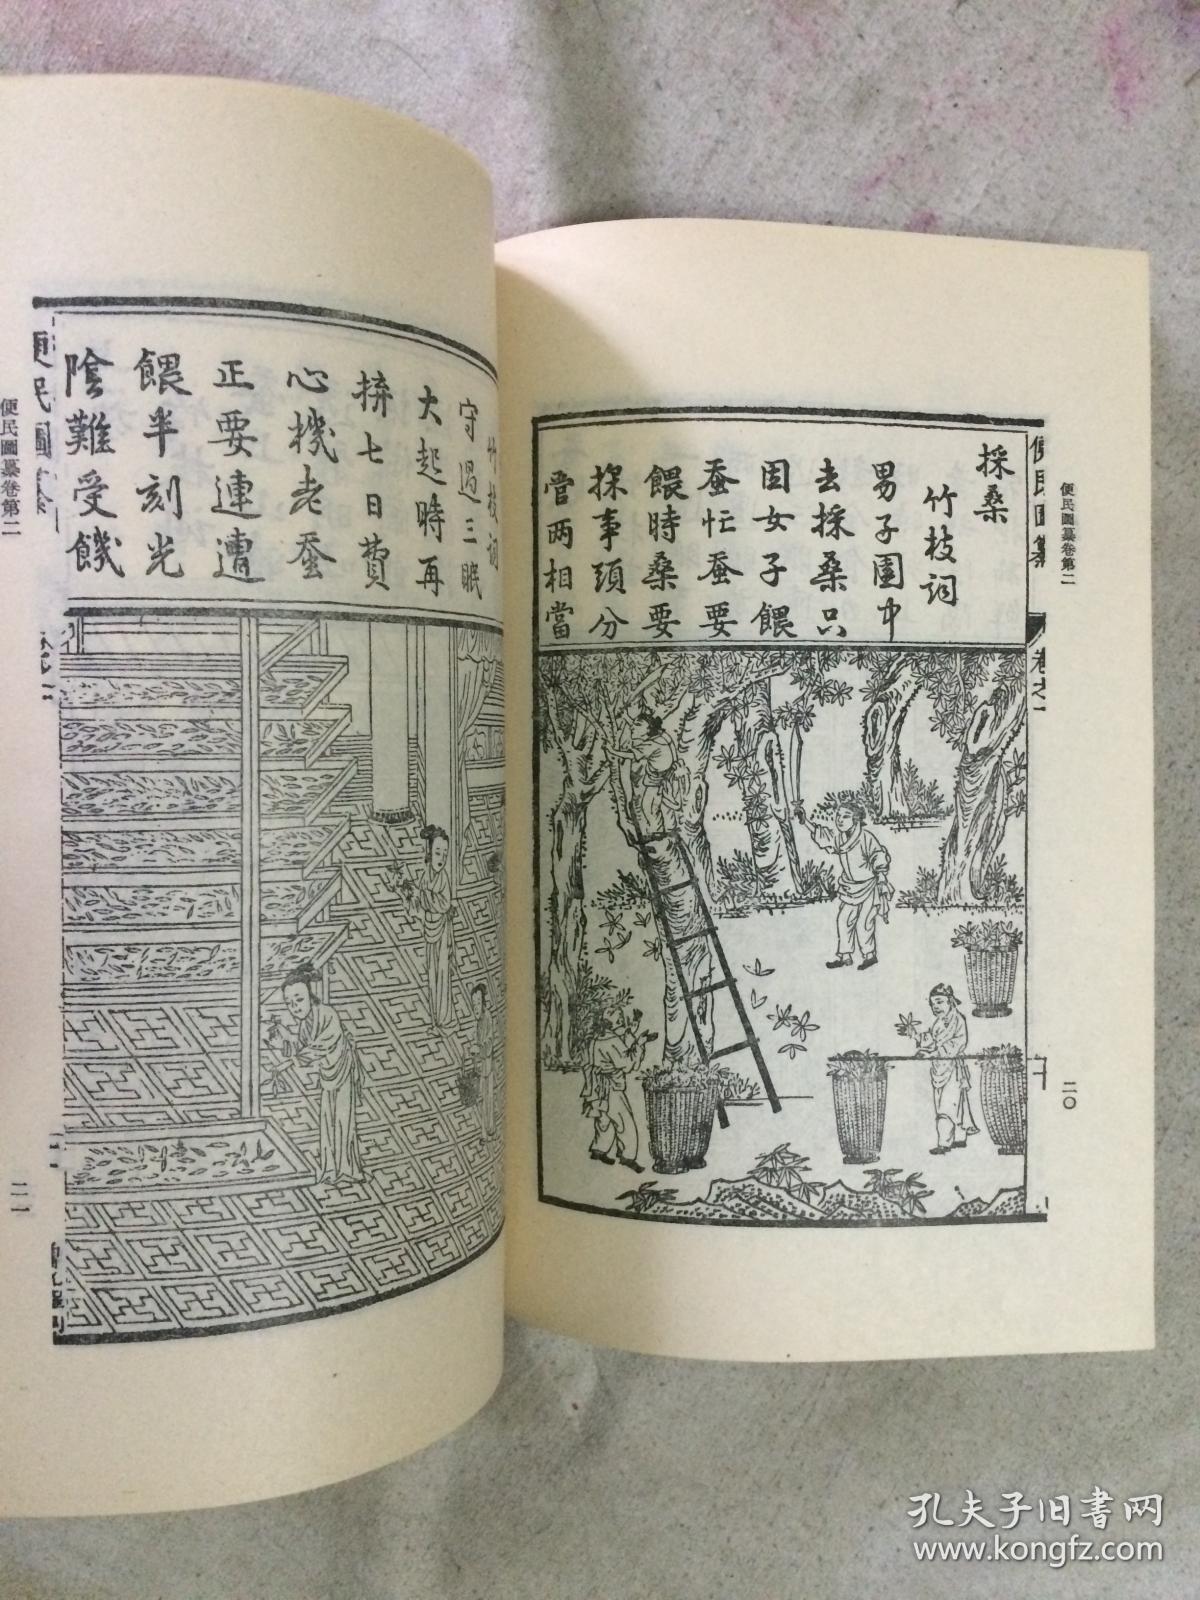 採桑
竹枝詞
男子園中
去採桑只
因女子餵
蚕忙蚕要
餵時桑要
採事頭分
管両相當
便民圖纂
便民圖纂卷第二
二〇
竹枝詞
守過三眠
大起時再
拚七日費
心機老蚕
正要連遭
餵半刻光
陰難受饑
便民圖纂
便民圖纂卷第二
二一
孔夫子旧書网
www.kongfz.com